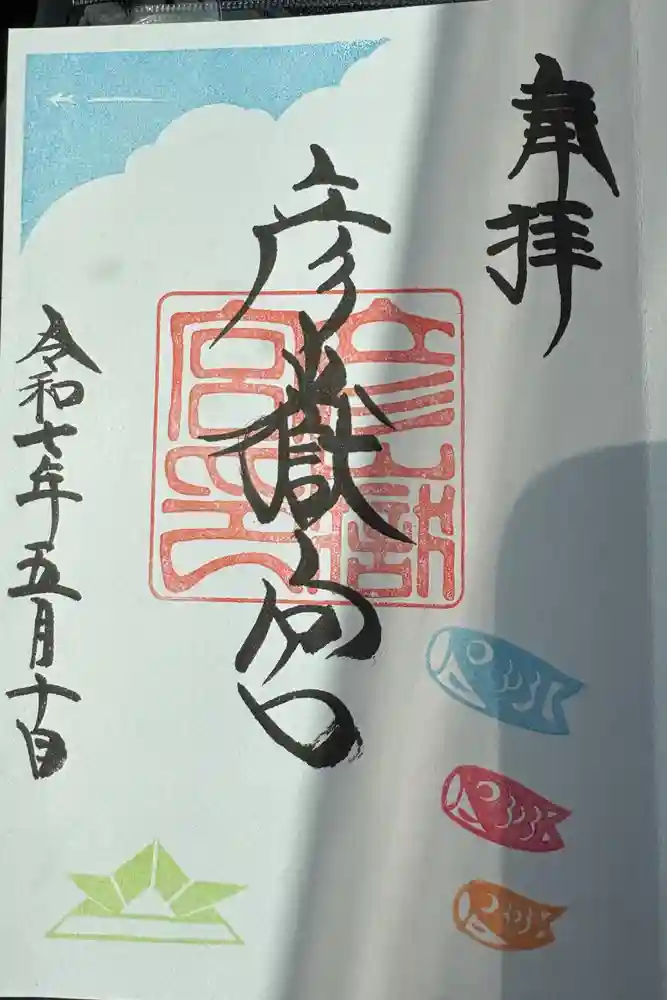 奉拝
彦嶽宮
令和七年五月十日